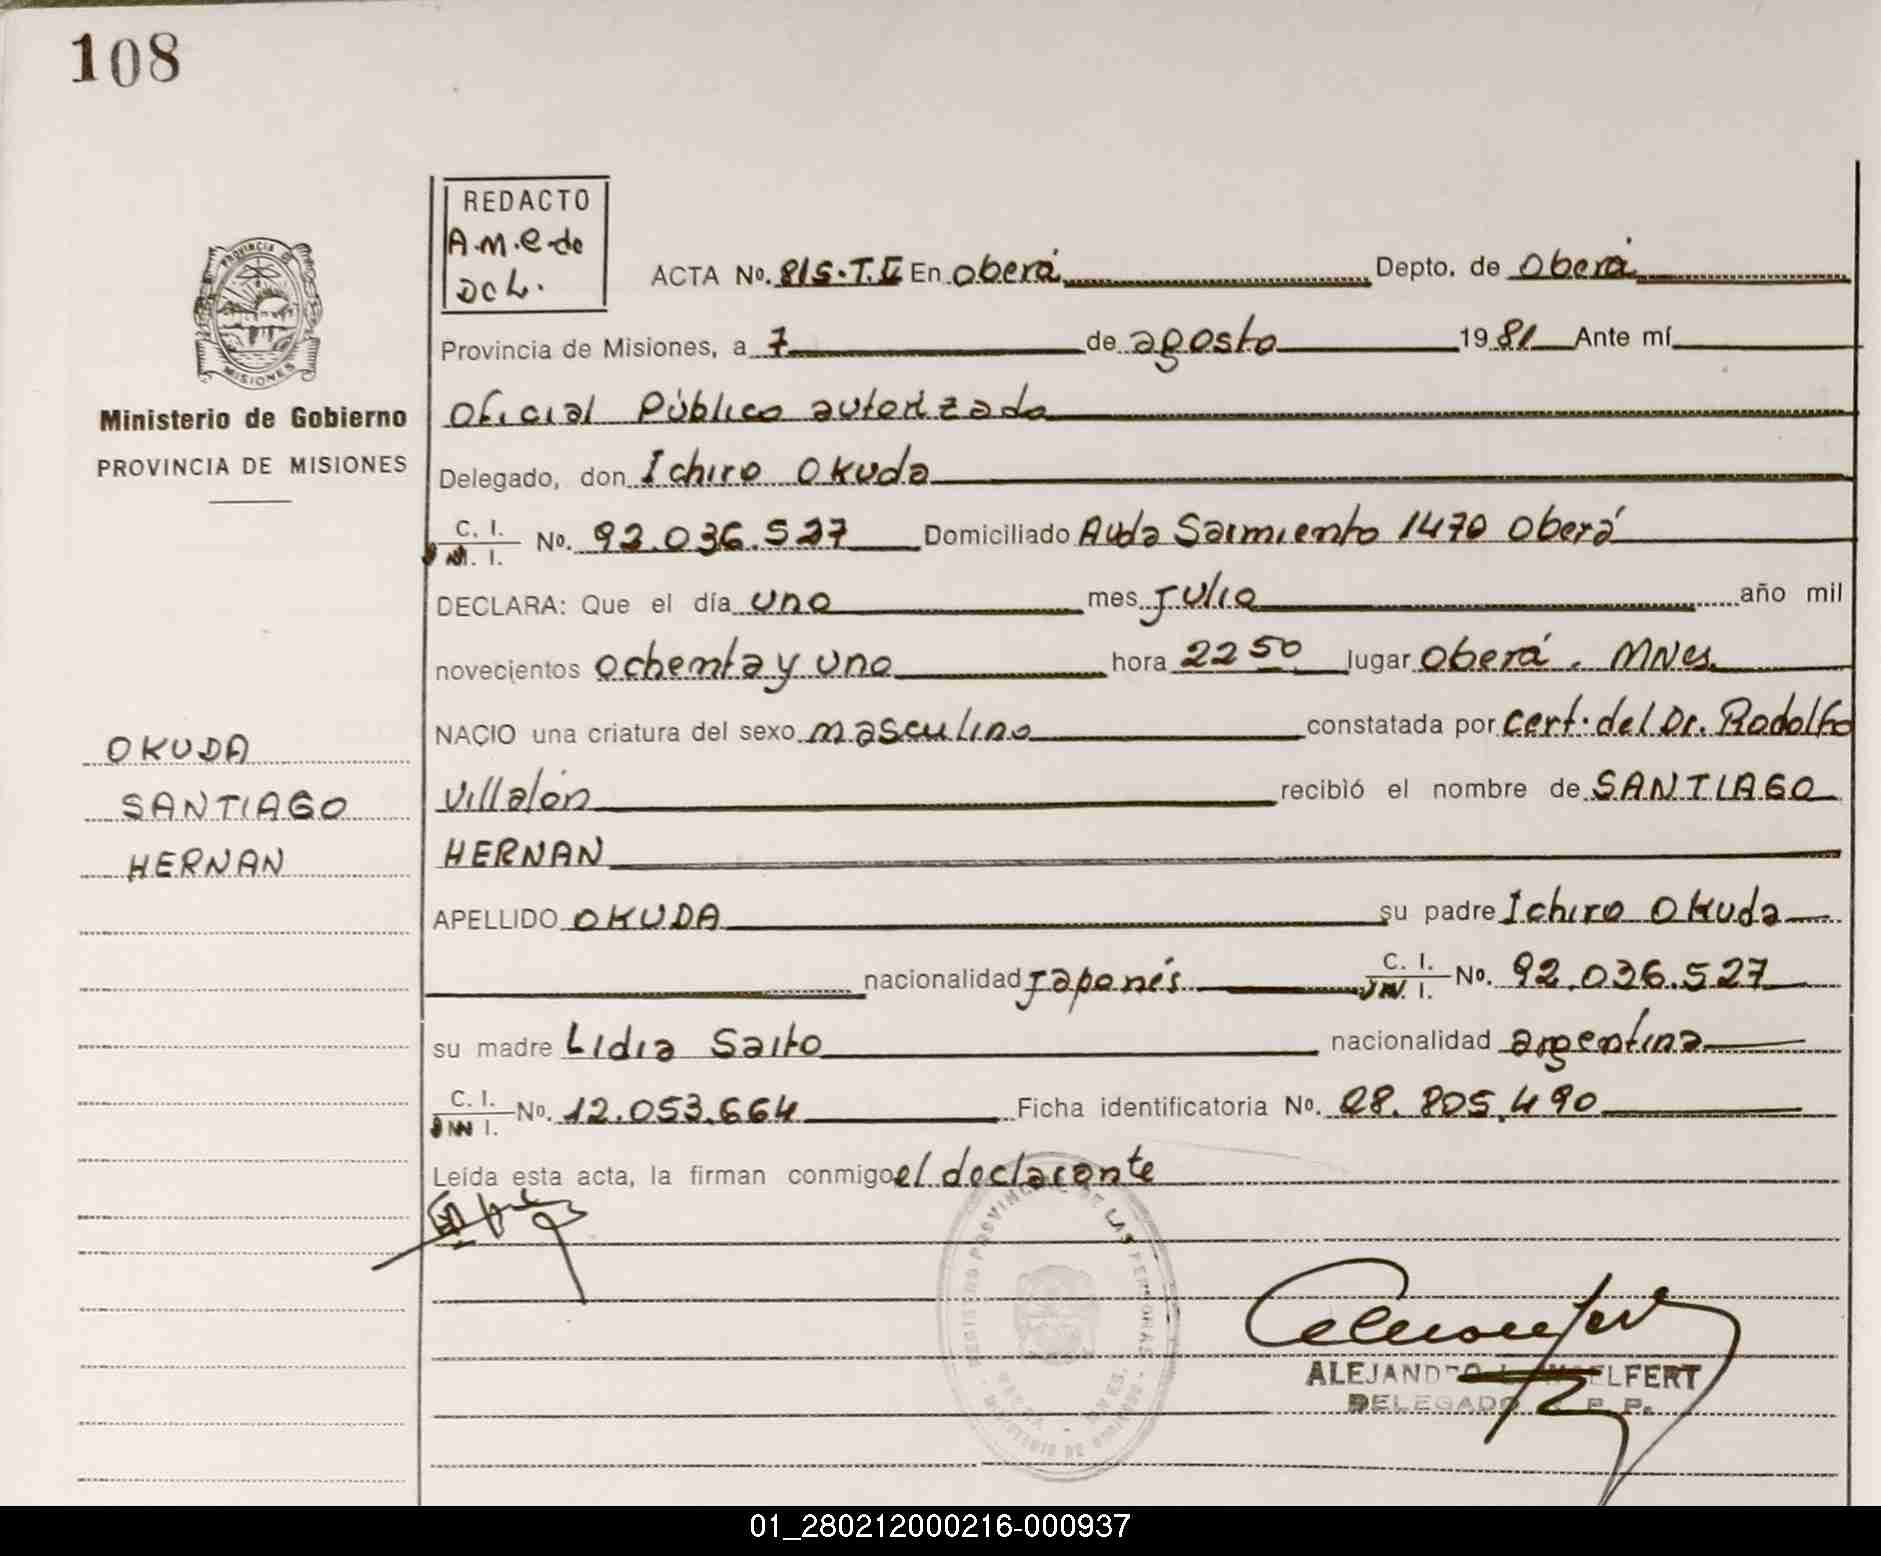 108
REDACTO
A.M.C de
DCL.
PROVINCIA DE
MISIONES
Ministerio de Gobierno
PROVINCIA DE MISIONES
ACTA No. 815.T.II En Oberá Depto. de Oberá
Provincia de Misiones, a 7 de agosto 1981 Ante mí
Oficial Público autorizado
Delegado, don Ichiro Okuda
C. I.
M. I. No. 92.036.527 Domiciliado Avda Sarmiento 1470 Oberá
DECLARA: Que el día uno mes julio año mil
novecientos ochenta y uno hora 22 50 lugar Oberá. MNes.
NACIO una criatura del sexo masculino constatada por cert. del Dr. Rodolfo
Villalón recibió el nombre de SANTIAGO
HERNAN
APELLIDO OKUDA su padre Ichiro Okuda
nacionalidad japonés C. I.
M. I. No. 92.036.527
su madre Lidia Saito nacionalidad argentina
C. I.
M I. No. 12.053.664 Ficha identificatoria No. 28.805.490
Leída esta acta, la firman conmigo el declarante
OKUDA
SANTIAGO
HERNAN
REGISTRO PROVINCIAL DE LAS PERSONAS
MINISTERIO DE GOBIERNO
ALEJANDRO ELFERT
DELEGADO P. P.
01_280212000216-000937